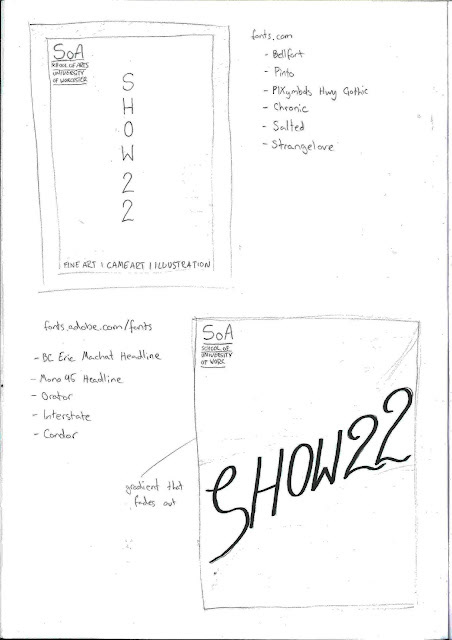 SoA
SCHOOL OF ARTS
UNIVERSITY
OF WORCESTER
S
H
O
W
2
2
FINE ART | GAME ART | ILLUSTRATION
fonts.com
- Bellfort
- Pinto
- PIXymbols Hwy Gothic
- Chronic
- Salted
- Strangelove
fonts.adobe.com/fonts
- BC Eric Machat Headline
- Mono 45 Headline
- Orator
- Interstate
- Condor
gradient that
fades out
SoA
SCHOOL OF
UNIVERSITY
OF WORC
SHOW22